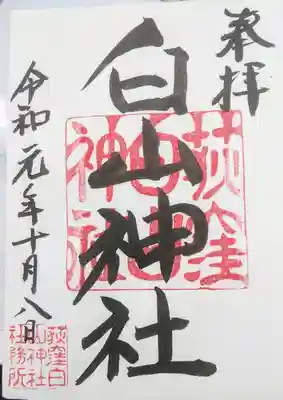 奉拝
白山神社
荻窪白山神社
令和元年十月八日
荻窪白山神社社務所